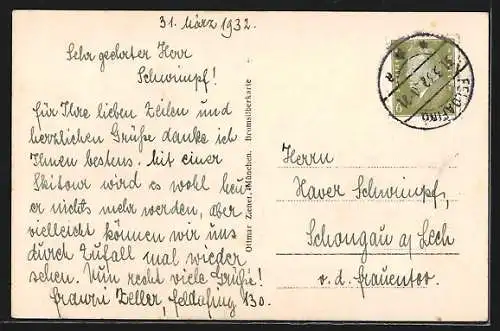 31. März 1932.
Sehr geehrter Herr
Schwimpf!
für Ihre lieben Zeilen und
herzlichen Grüße danke ich
Ihnen bestens. Mit einer
Skitour wird es wohl heu-
er nichts mehr werden, aber
vielleicht können wir uns
durch Zufall mal wieder
sehen. Nun recht viele Grüße!
Zeller, Feldafing 130.
Ottmar Zieher, München. Bromsilberkarte
FELDAFING
31.3.32
Herrn
Xaver Schwimpf,
Schongau a/Lech
v. d. Frauentor.